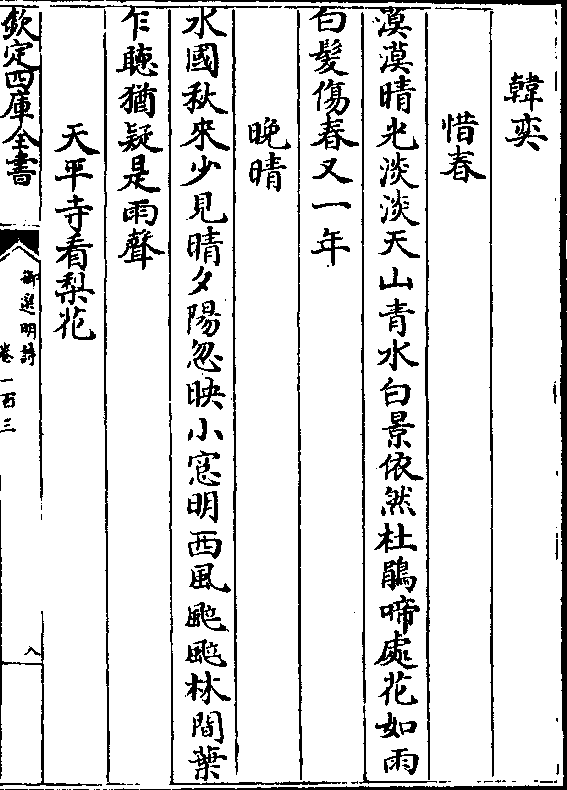 韓奕
惜春
漠漠晴光淡淡天山青水白景依然杜鵑啼處花如雨
白髮傷春又一年
晚晴
水國秋來少見晴夕陽忽映小窓明西風颭颭林間葉
乍聽猶疑是雨聲
天平寺看梨花
欽定四庫全書
御選明詩
卷一百三
八